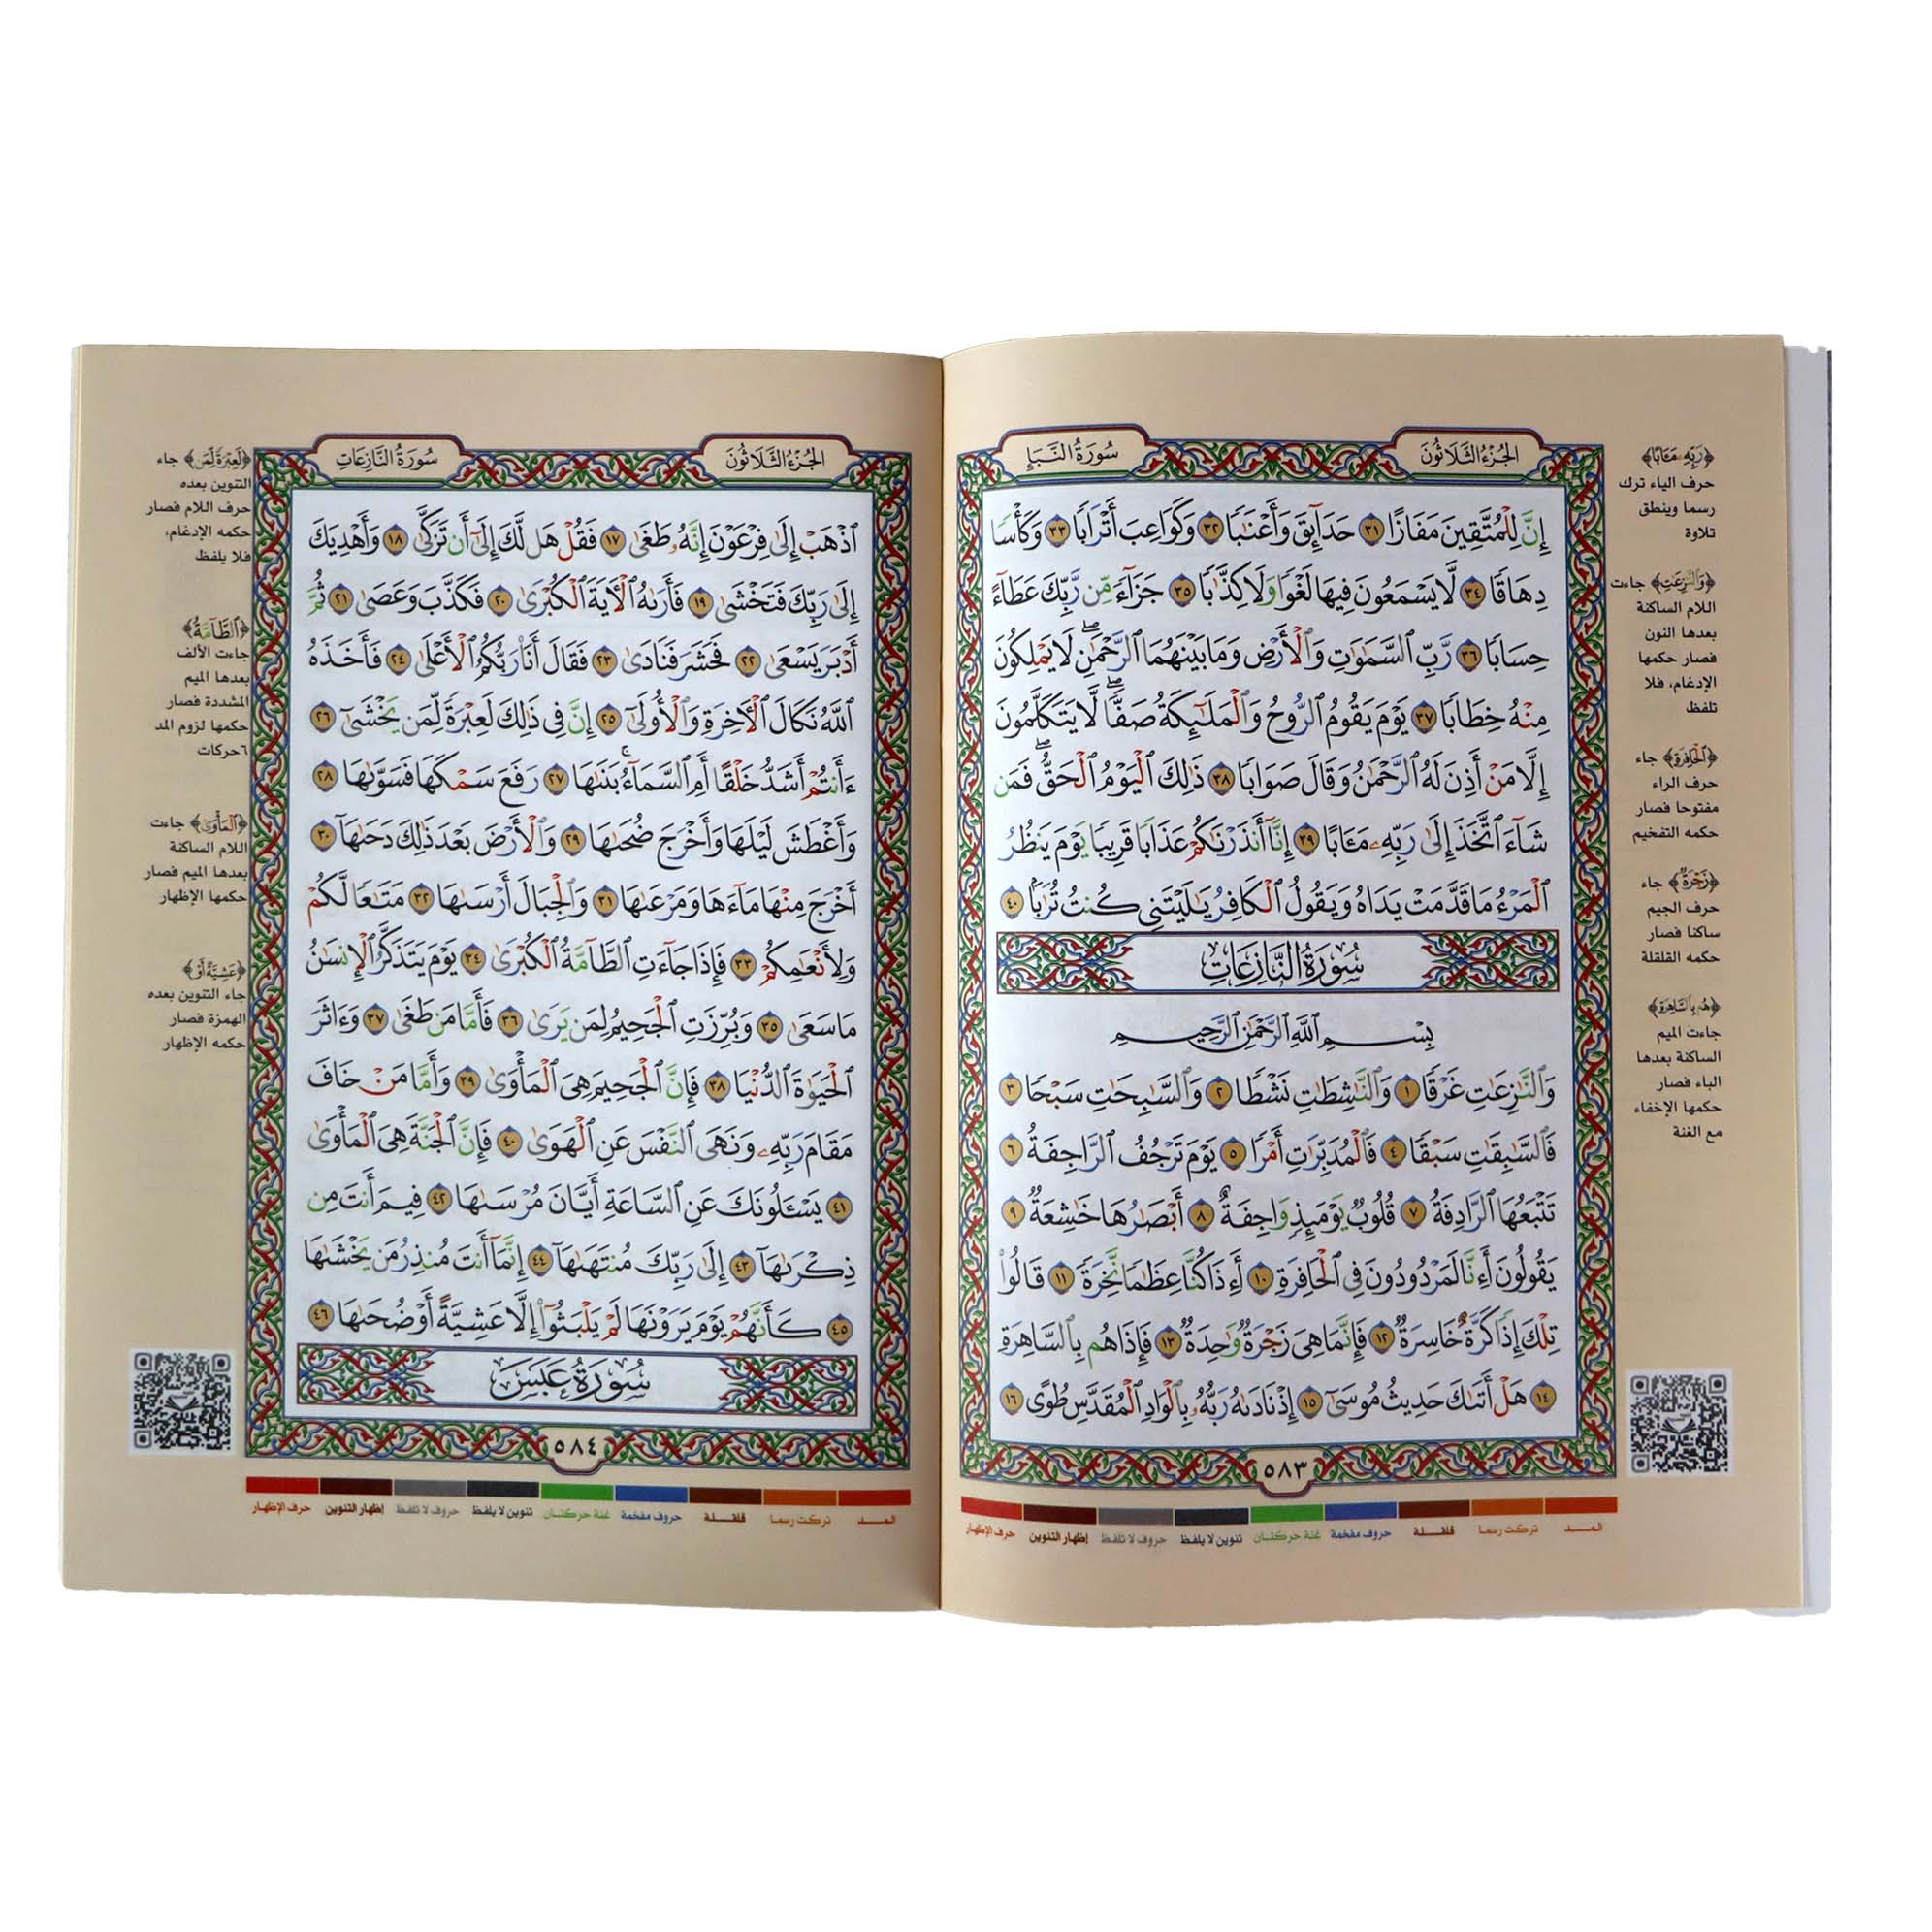 الجُزْءُ الثَّلَاثُونَ
سُورَةُ النَّبَإِ
إِنَّ لِلْمُتَّقِينَ مَفَازًا ٣١ حَدَآئِقَ وَأَعْنَٰبًا ٣٢ وَكَوَاعِبَ أَتْرَابًا ٣٣ وَكَأْسًا
دِهَاقًا ٣٤ لَّا يَسْمَعُونَ فِيهَا لَغْوًا وَلَا كِذَّٰبًا ٣٥ جَزَآءً مِّن رَّبِّكَ عَطَآءً
حِسَابًا ٣٦ رَّبِّ ٱلسَّمَٰوَٰتِ وَٱلْأَرْضِ وَمَا بَيْنَهُمَا ٱلرَّحْمَٰنِۖ لَا يَمْلِكُونَ
مِنْهُ خِطَابًا ٣٧ يَوْمَ يَقُومُ ٱلرُّوحُ وَٱلْمَلَٰٓئِكَةُ صَفًّاۖ لَّا يَتَكَلَّمُونَ
إِلَّا مَنْ أَذِنَ لَهُ ٱلرَّحْمَٰنُ وَقَالَ صَوَابًا ٣٨ ذَٰلِكَ ٱلْيَوْمُ ٱلْحَقُّۖ فَمَن
شَآءَ ٱتَّخَذَ إِلَىٰ رَبِّهِۦ مَـَٔابًا ٣٩ إِنَّآ أَنذَرْنَٰكُمْ عَذَابًا قَرِيبًا يَوْمَ يَنظُرُ
ٱلْمَرْءُ مَا قَدَّمَتْ يَدَاهُ وَيَقُولُ ٱلْكَافِرُ يَٰلَيْتَنِى كُنتُ تُرَٰبًۢا ٤٠
سُورَةُ النَّازِعَاتِ
بِسْمِ ٱللَّهِ ٱلرَّحْمَٰنِ ٱلرَّحِيمِ
وَٱلنَّٰزِعَٰتِ غَرْقًا ١ وَٱلنَّٰشِطَٰتِ نَشْطًا ٢ وَٱلسَّٰبِحَٰتِ سَبْحًا ٣
فَٱلسَّٰبِقَٰتِ سَبْقًا ٤ فَٱلْمُدَبِّرَٰتِ أَمْرًا ٥ يَوْمَ تَرْجُفُ ٱلرَّاجِفَةُ ٦
تَتْبَعُهَا ٱلرَّادِفَةُ ٧ قُلُوبٌ يَوْمَئِذٍ وَاجِفَةٌ ٨ أَبْصَٰرُهَا خَٰشِعَةٌ ٩
يَقُولُونَ أَءِنَّا لَمَرْدُودُونَ فِى ٱلْحَافِرَةِ ١٠ أَءِذَا كُنَّا عِظَٰمًا نَّخِرَةً ١١ قَالُوا۟
تِلْكَ إِذًا كَرَّةٌ خَاسِرَةٌ ١٢ فَإِنَّمَا هِىَ زَجْرَةٌ وَٰحِدَةٌ ١٣ فَإِذَا هُم بِٱلسَّاهِرَةِ
١٤ هَلْ أَتَىٰكَ حَدِيثُ مُوسَىٰٓ ١٥ إِذْ نَادَىٰهُ رَبُّهُۥ بِٱلْوَادِ ٱلْمُقَدَّسِ طُوًى ١٦
٥٨٣
﴿رَبِّهِۦ مَـَٔابًا﴾
حرف الياء ترك
رسما وينطق
تلاوة
﴿وَٱلنَّٰزِعَٰتِ﴾ جاءت
اللام الساكنة
بعدها النون
فصار حكمها
الإدغام، فلا
تلفظ
﴿ٱلْحَافِرَةِ﴾ جاء
حرف الراء
مفتوحا فصار
حكمه التفخيم
﴿زَجْرَةٌ﴾ جاء
حرف الجيم
ساكنا فصار
حكمه القلقلة
﴿هُم بِٱلسَّاهِرَةِ﴾
جاءت الميم
الساكنة بعدها
الباء فصار
حكمها الإخفاء
مع الغنة
المــد تركت رسما قلقلة حروف مفخمة غنة حركتان تنوين لا يلفظ حروف لا تلفظ إظهار التنوين حرف الإظهار
الجُزْءُ الثَّلَاثُونَ
سُورَةُ النَّازِعَاتِ
ٱذْهَبْ إِلَىٰ فِرْعَوْنَ إِنَّهُۥ طَغَىٰ ١٧ فَقُلْ هَل لَّكَ إِلَىٰٓ أَن تَزَكَّىٰ ١٨ وَأَهْدِيَكَ
إِلَىٰ رَبِّكَ فَتَخْشَىٰ ١٩ فَأَرَىٰهُ ٱلْـَٔايَةَ ٱلْكُبْرَىٰ ٢٠ فَكَذَّبَ وَعَصَىٰ ٢١ ثُمَّ
أَدْبَرَ يَسْعَىٰ ٢٢ فَحَشَرَ فَنَادَىٰ ٢٣ فَقَالَ أَنَا۠ رَبُّكُمُ ٱلْأَعْلَىٰ ٢٤ فَأَخَذَهُ
ٱللَّهُ نَكَالَ ٱلْـَٔاخِرَةِ وَٱلْأُولَىٰٓ ٢٥ إِنَّ فِى ذَٰلِكَ لَعِبْرَةً لِّمَن يَخْشَىٰٓ ٢٦
ءَأَنتُمْ أَشَدُّ خَلْقًا أَمِ ٱلسَّمَآءُۚ بَنَىٰهَا ٢٧ رَفَعَ سَمْكَهَا فَسَوَّىٰهَا ٢٨
وَأَغْطَشَ لَيْلَهَا وَأَخْرَجَ ضُحَىٰهَا ٢٩ وَٱلْأَرْضَ بَعْدَ ذَٰلِكَ دَحَىٰهَآ ٣٠
أَخْرَجَ مِنْهَا مَآءَهَا وَمَرْعَىٰهَا ٣١ وَٱلْجِبَالَ أَرْسَىٰهَا ٣٢ مَتَٰعًا لَّكُمْ
وَلِأَنْعَٰمِكُمْ ٣٣ فَإِذَا جَآءَتِ ٱلطَّآمَّةُ ٱلْكُبْرَىٰ ٣٤ يَوْمَ يَتَذَكَّرُ ٱلْإِنسَٰنُ
مَا سَعَىٰ ٣٥ وَبُرِّزَتِ ٱلْجَحِيمُ لِمَن يَرَىٰ ٣٦ فَأَمَّا مَن طَغَىٰ ٣٧ وَءَاثَرَ
ٱلْحَيَوٰةَ ٱلدُّنْيَا ٣٨ فَإِنَّ ٱلْجَحِيمَ هِىَ ٱلْمَأْوَىٰ ٣٩ وَأَمَّا مَنْ خَافَ
مَقَامَ رَبِّهِۦ وَنَهَى ٱلنَّفْسَ عَنِ ٱلْهَوَىٰ ٤٠ فَإِنَّ ٱلْجَنَّةَ هِىَ ٱلْمَأْوَىٰ
٤١ يَسْـَٔلُونَكَ عَنِ ٱلسَّاعَةِ أَيَّانَ مُرْسَىٰهَا ٤٢ فِيمَ أَنتَ مِن
ذِكْرَىٰهَآ ٤٣ إِلَىٰ رَبِّكَ مُنتَهَىٰهَآ ٤٤ إِنَّمَآ أَنتَ مُنذِرُ مَن يَخْشَىٰهَا
٤٥ كَأَنَّهُمْ يَوْمَ يَرَوْنَهَا لَمْ يَلْبَثُوٓا۟ إِلَّا عَشِيَّةً أَوْ ضُحَىٰهَا ٤٦
سُورَةُ عَبَسَ
٥٨٤
﴿لَعِبْرَةً لِّمَن﴾ جاء
التنوين بعده
حرف اللام فصار
حكمه الإدغام،
فلا يلفظ
﴿ٱلطَّآمَّةُ﴾
جاءت الألف
بعدها الميم
المشددة فصار
حكمها لزوم المد
٦حركات
﴿ٱلْمَأْوَىٰ﴾ جاءت
اللام الساكنة
بعدها الميم فصار
حكمها الإظهار
﴿عَشِيَّةً أَوْ﴾
جاء التنوين بعده
الهمزة فصار
حكمه الإظهار
المــد تركت رسما قلقلة حروف مفخمة غنة حركتان تنوين لا يلفظ حروف لا تلفظ إظهار التنوين حرف الإظهار